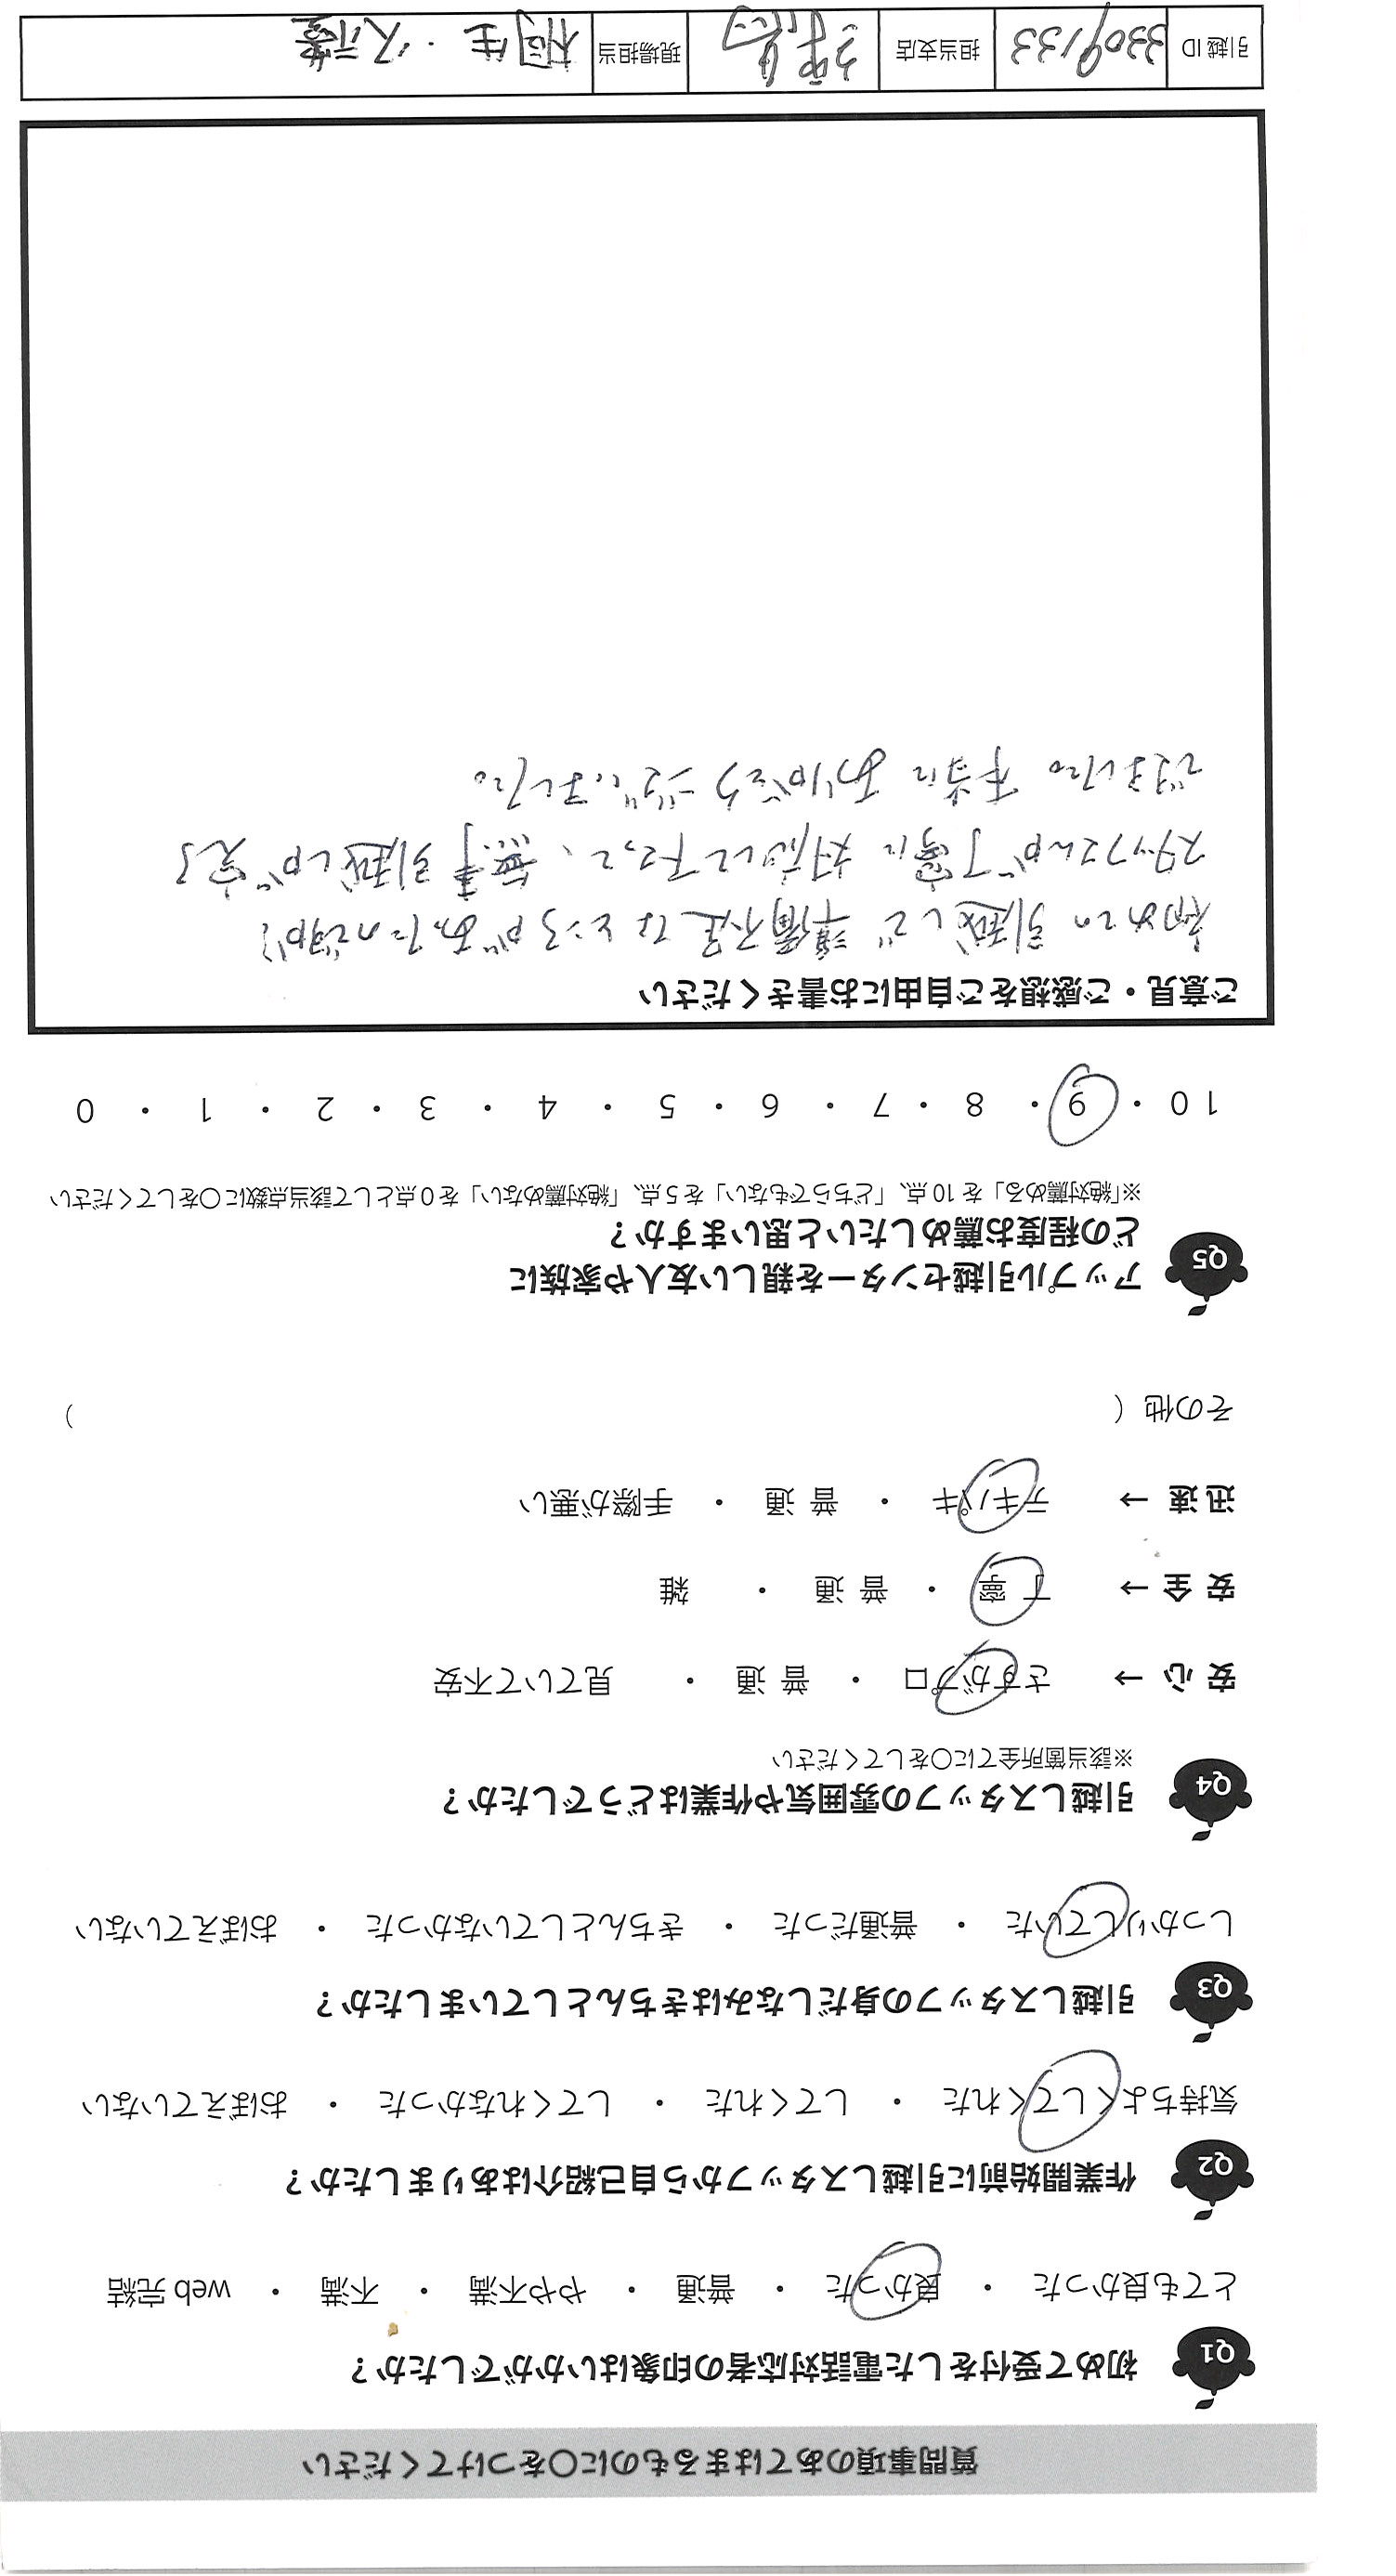 質問事項のあてはまるものに〇をつけてください
Q1 初めて受付をした電話対応者の印象はいかがでしたか？
とても良かった ・ 良かった ・ 普通 ・ やや不満 ・ 不満 ・ web 完結
Q2 作業開始前に引越しスタッフから自己紹介はありましたか？
気持ちよくしてくれた ・ してくれた ・ してくれなかった ・ おぼえていない
Q3 引越しスタッフの身だしなみはきちんとしていましたか？
しっかりしていた ・ 普通だった ・ きちんとしていなかった ・ おぼえていない
Q4 引越しスタッフの雰囲気や作業はどうでしたか？
※該当箇所全てに〇をしてください
安 心 → さすがプロ ・ 普 通 ・ 見ていて不安
安 全 → 丁 寧 ・ 普 通 ・ 雑
迅 速 → テキパキ ・ 普 通 ・ 手際が悪い
その他 （ ）
Q5 アップル引越センターを親しい友人や家族に
どの程度お薦めしたいと思いますか？
※「絶対薦める」を 10 点、「どちらでもない」を 5 点、「絶対薦めない」を 0 点として該当点数に〇をしてください
10 ・ 9 ・ 8 ・ 7 ・ 6 ・ 5 ・ 4 ・ 3 ・ 2 ・ 1 ・ 0
ご意見・ご感想をご自由にお書きください
初めての引越しで準備不足なところがあったのですが
スタッフさんが丁寧に対応して下さって、無事引越しが完了
できました。本当にありがとうございました。
引越 ID 3309133 担当支店 現場担当 桐生・